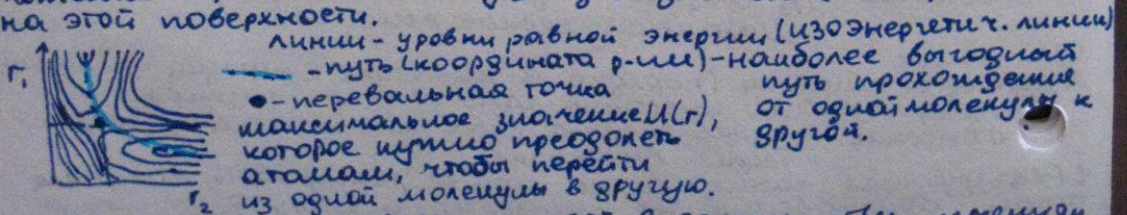 на этой поверхности.
линии - уровни равной энергии (изоэнергетич. линии)
r₁
- путь (координата р-ции) - наиболее выгодный
путь прохождения
от одной молекулы к
другой.
• - перевальная точка
максимальное значение U(r),
которое нужно преодолеть
атомам, чтобы перейти
из одной молекулы в другую.
r₂